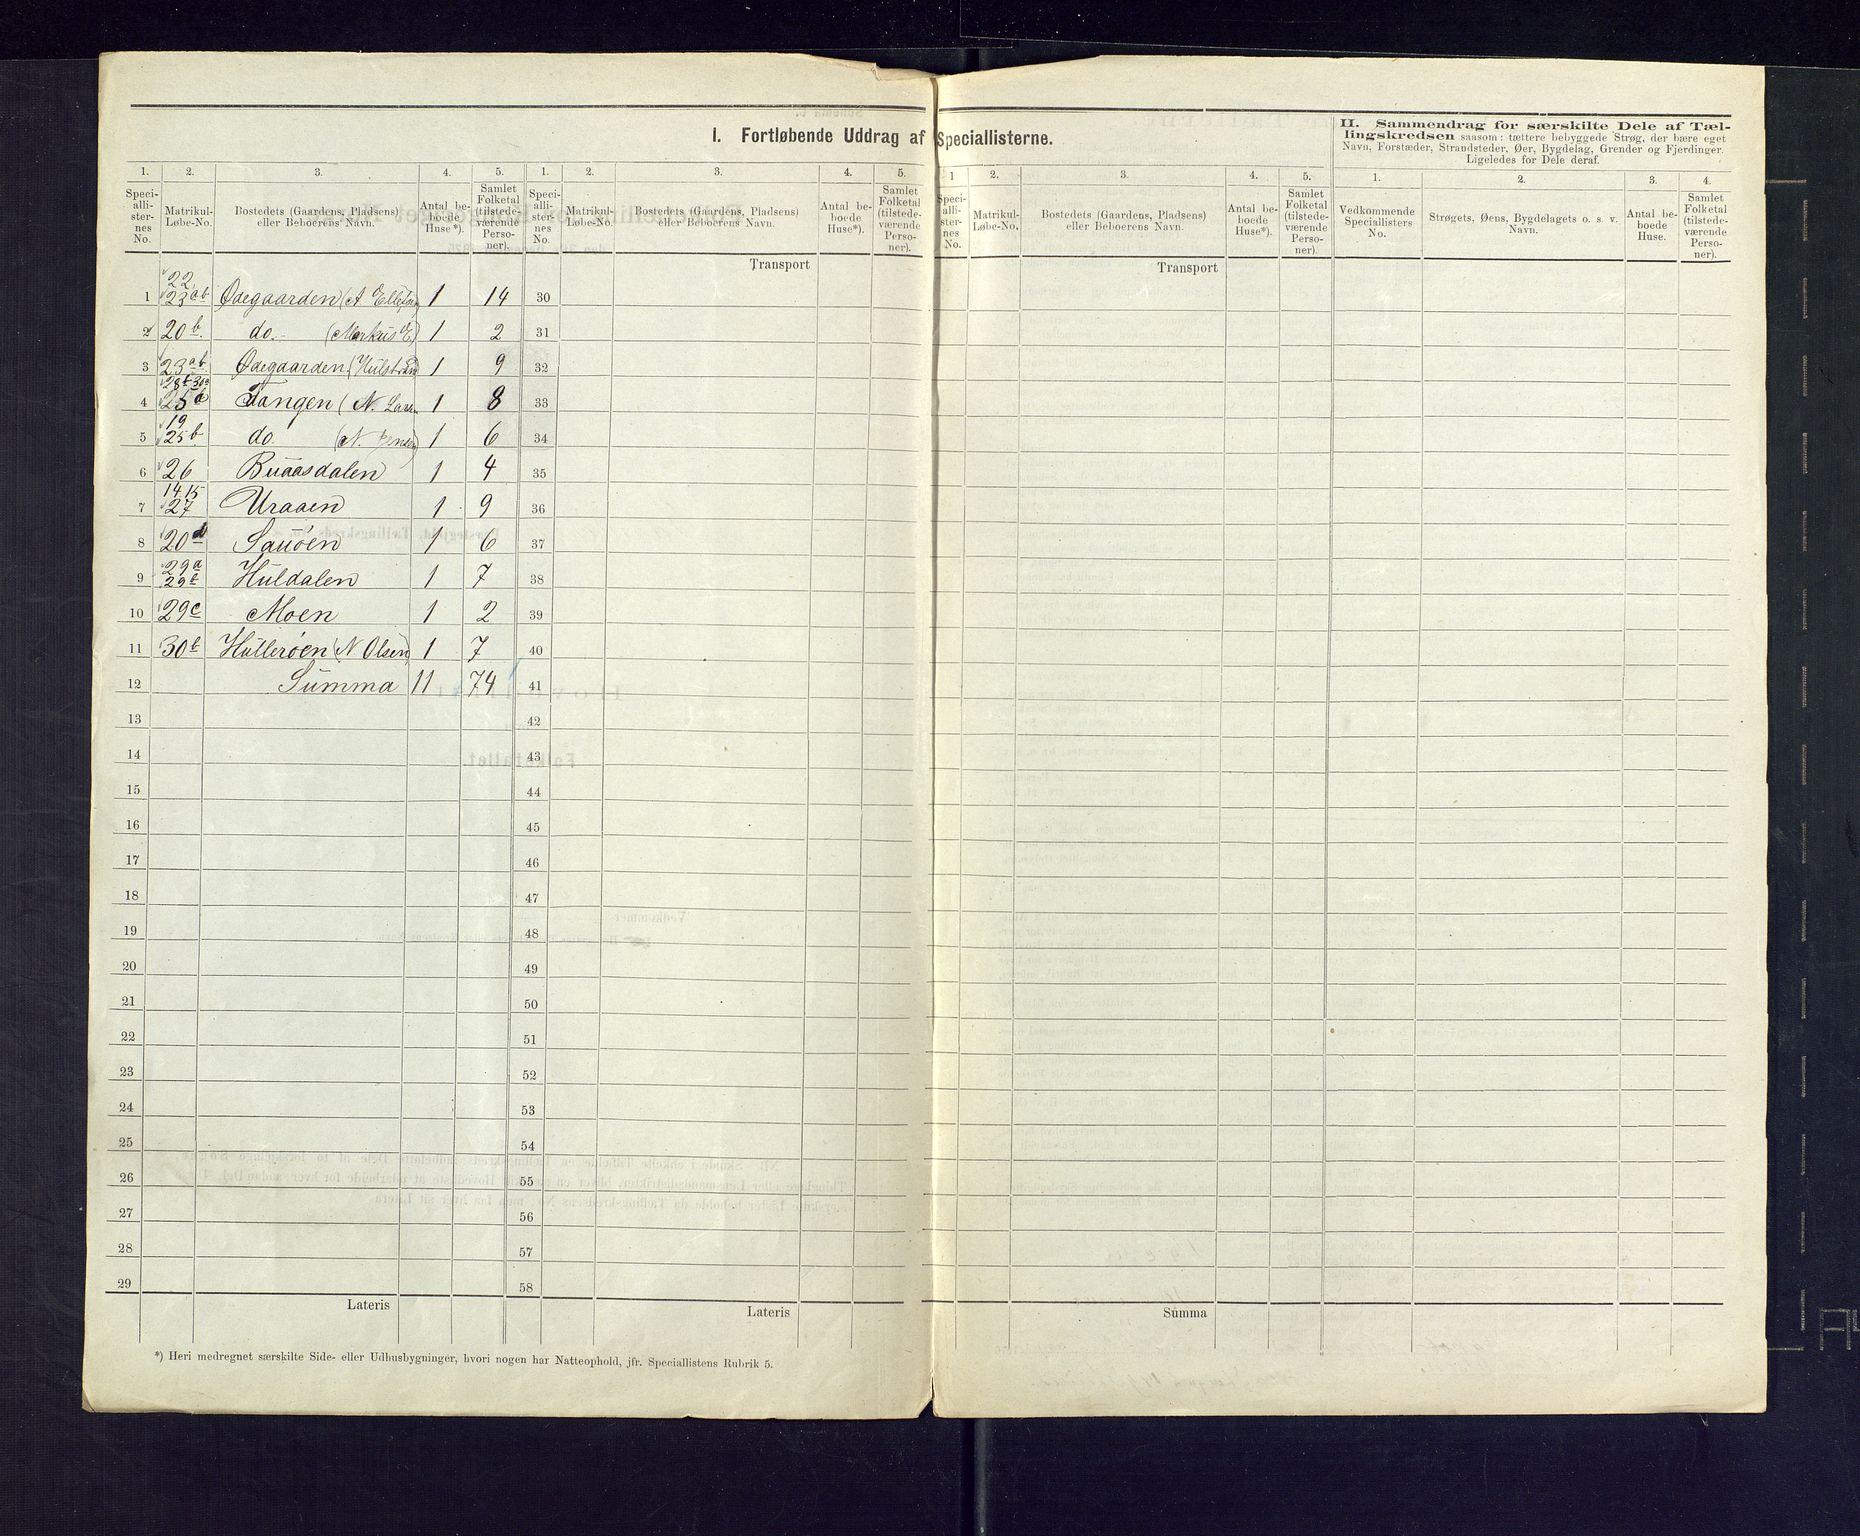 I. Fortløbende Uddrag af Speciallisterne.
1. 2. 3. 4. 5.
Speciallisternes No. Matrikul-Løbe-No. Bostedets (Gaardens, Pladsens) eller Beboerens Navn. Antal beboede Huse*). Samlet Folketal (tilstedeværende Personer).
1 22 23ab Ødegaarden (A Ellefsen 1 14
2 20b do. (Markus E.) 1 2
3 23ab Ødegaarden (Hulstrand 1 9
4 28b 30a 25a Tangen (N. Larsen 1 8
5 19 25b do. (N. Jensen) 1 6
6 26 Buaasdalen 1 4
7 14.15 27 Uraaen 1 9
8 20d Sauøen 1 6
9 29a 29b Huldalen 1 7
10 29c Moen 1 2
11 30b Hullerøen (N. Olsen) 1 7
12 Summa 11 74
13
14
15
16
17
18
19
20
21
22
23
24
25
26
27
28
29
Lateris
1. 2. 3. 4. 5.
Speciallisternes No. Matrikul-Løbe-No. Bostedets (Gaardens, Pladsens) eller Beboerens Navn. Antal beboede Huse*). Samlet Folketal (tilstedeværende Personer).
Transport
30
31
32
33
34
35
36
37
38
39
40
41
42
43
44
45
46
47
48
49
50
51
52
53
54
55
56
57
58
Lateris
*) Heri medregnet særskilte Side- eller Udhusbygninger, hvori nogen har Natteophold, jfr. Speciallistens Rubrik 5.
1 2. 3. 4. 5.
Speciallisternes No. Matrikul-Løbe-No. Bostedets (Gaardens, Pladsens) eller Beboerens Navn. Antal beboede Huse*). Samlet Folketal (tilstedeværende Personer).
Transport
Summa
II. Sammendrag for særskilte Dele af Tæl-
lingskredsen saasom: tættere bebyggede Strøg, der bære eget
Navn, Forstæder, Strandsteder, Øer, Bygdelag, Grender og Fjerdinger.
Ligeledes for Dele deraf.
1. 2. 3. 4.
Vedkommende Speciallisters No. Strøgets, Øens, Bygdelagets o. s. v. Navn. Antal beboede Huse. Samlet Folketal (tilstedeværende Personer).